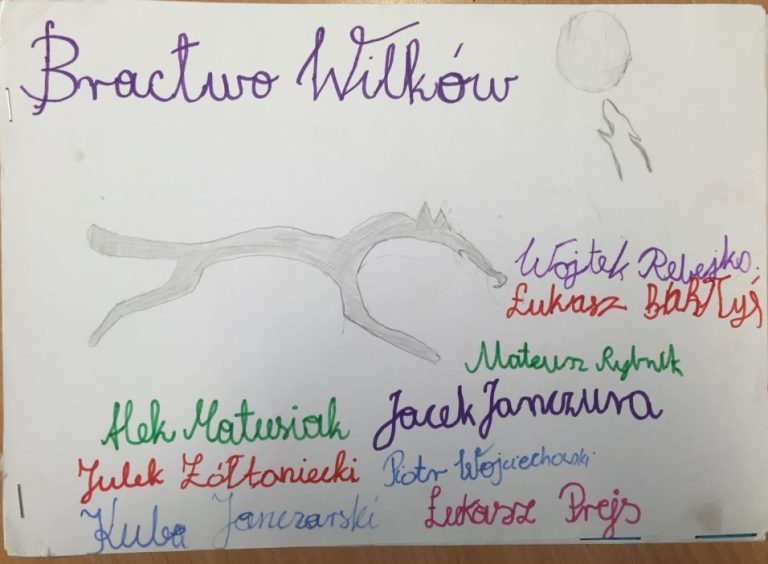 Bractwo Wilków
Wojtek Rebejko.
Łukasz Bałtyś
Mateusz Rybnik
Alek Matusiak Jacek Janczura
Julek Żółtaniecki Piotr Wojciechowski
Kuba Janczarski Łukasz Prejs